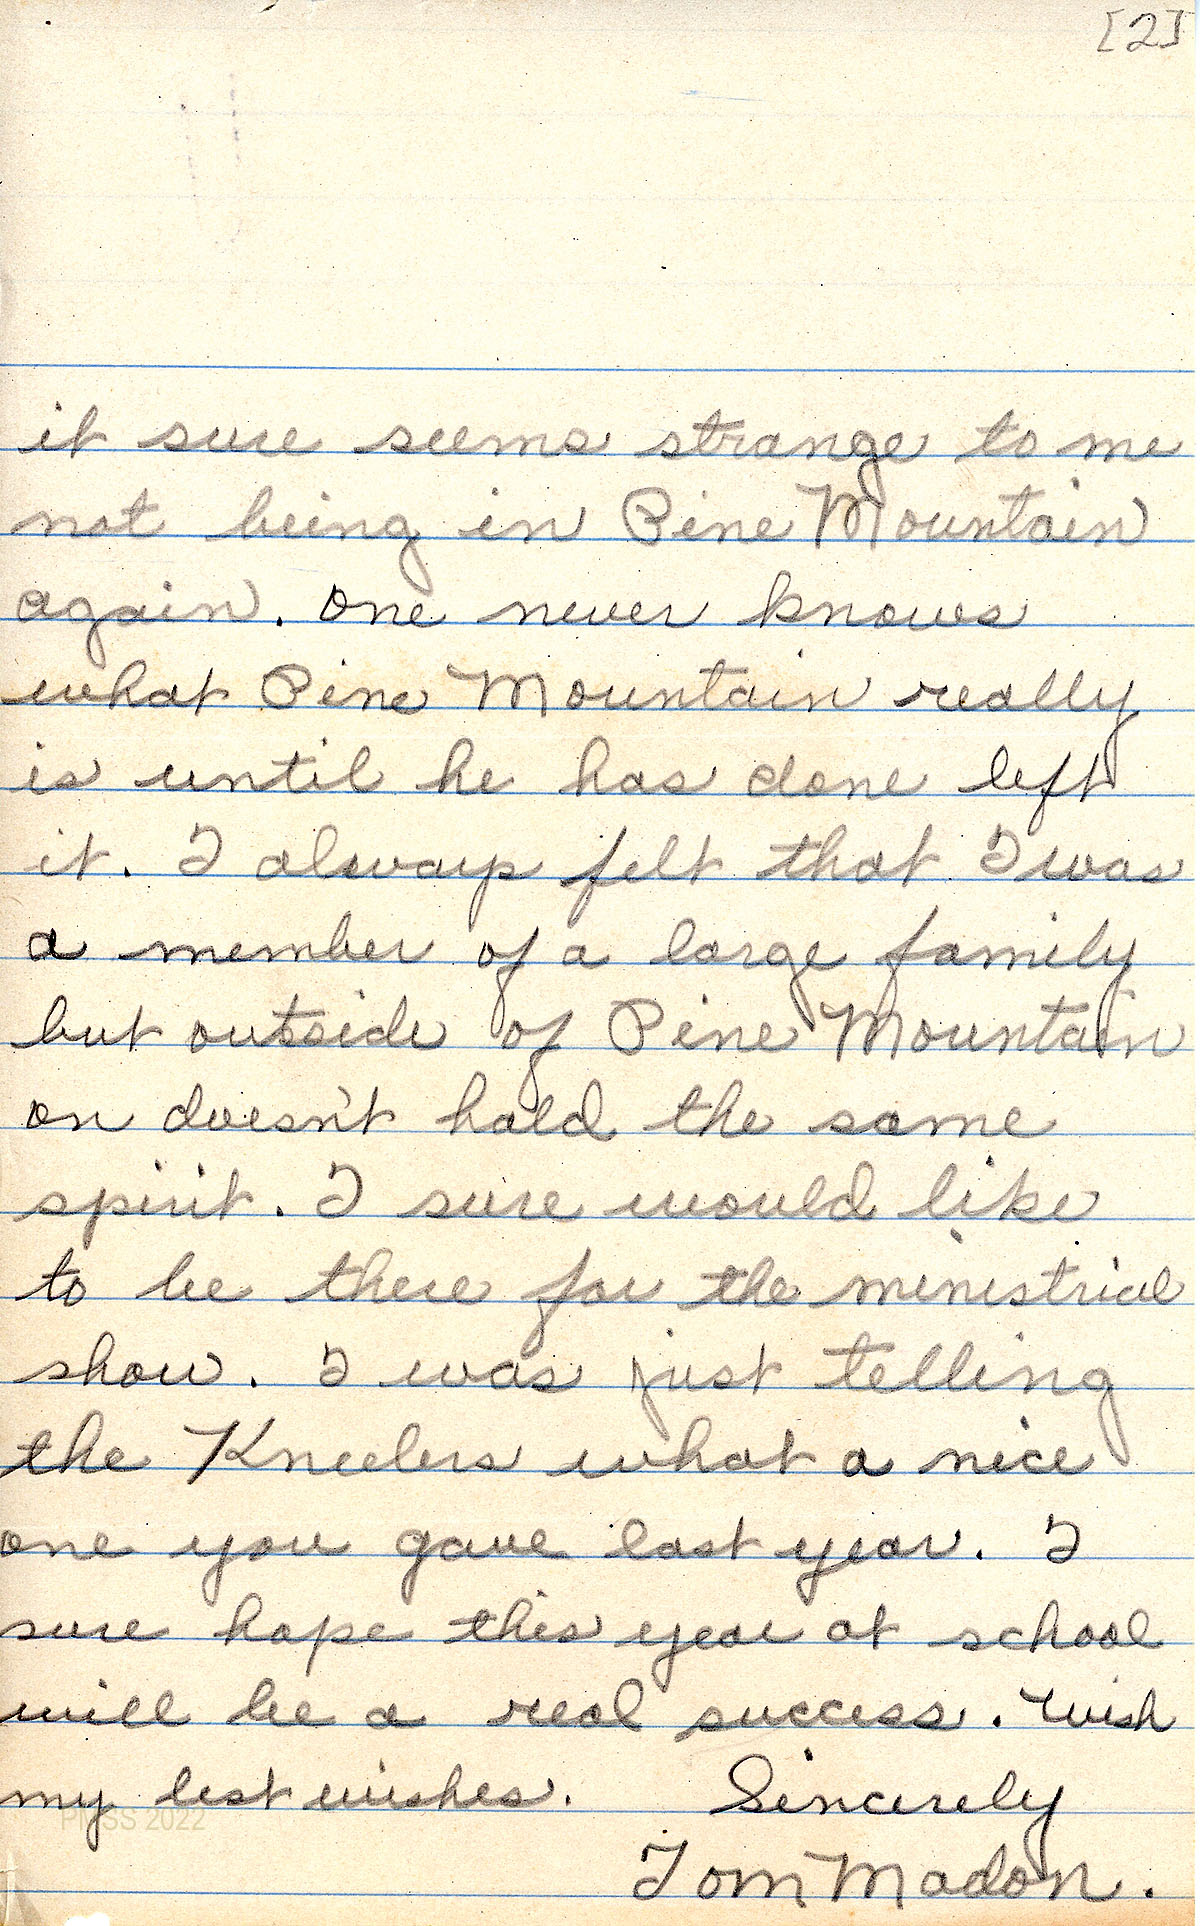 [2]
it sure seems strange to me
not being in Pine Mountain
again. One never knows
what Pine Mountain really
is until he has done left
it. I always felt that I was
a member of a large family
but outside of Pine Mountain
on doesn't hold the same
spirit. I sure would like
to be there for the ministrial
show. I was just telling
the Kneelers what a nice
one you gave last year. I
sure hope this year at school
will be a real success. Wish
my best wishes. Sincerely
PMSS 2022
Tom Madon.